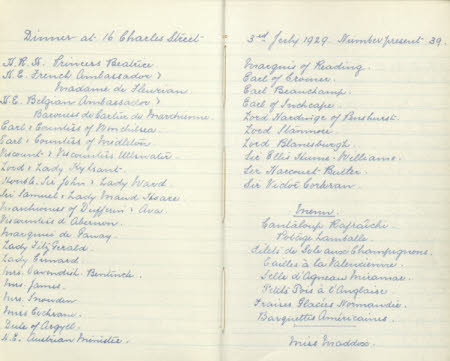 Dinner at 16 Charles Street
H.R.H. Princess Beatrice.
H.E. French Ambassador &
Madame de Fleuriau
H.E. Belgian Ambassador &
Baroness de Cartier de Marchienne
Earl & Countess of Winchilsea.
Earl & Countess of Midleton
Viscount & Viscountess Ullswater
Lord & Lady Kylsant.
Honble. Sir John & Lady Ward.
Sir Samuel & Lady Maud Hoare
Marchioness of Dufferin & Ava
Viscountess d'Abernon.
Marques de
Lady FitzGerald.
Lady Cunard.
Mrs. Cavendish Bentinck.
Mrs. James.
Mrs. Snowden
Miss Cochran.
Duke of Argyll.
H.E. Austrian Minister.
3rd July 1929. Number present 39.
Marquis of Reading.
Earl of Cromer.
Earl Beauchamp.
Earl of Inchcape.
Lord Hardinge of Penshurst.
Lord Stanmore.
Lord Blanesburgh.
Sir Ellis Hume-Williams.
Sir Harcourt Butler.
Sir Victor Corkran.
Menu.
Cantaloup Rafraîchi
Potage Lamballe.
Filets de Sole aux Champignons.
Cailles à la Valencienne.
Selle d'Agneau Miramar.
Petits Pois à l'Anglaise
Fraises Glacées Normandie.
Barquettes Américaines.
Miss Maddox.